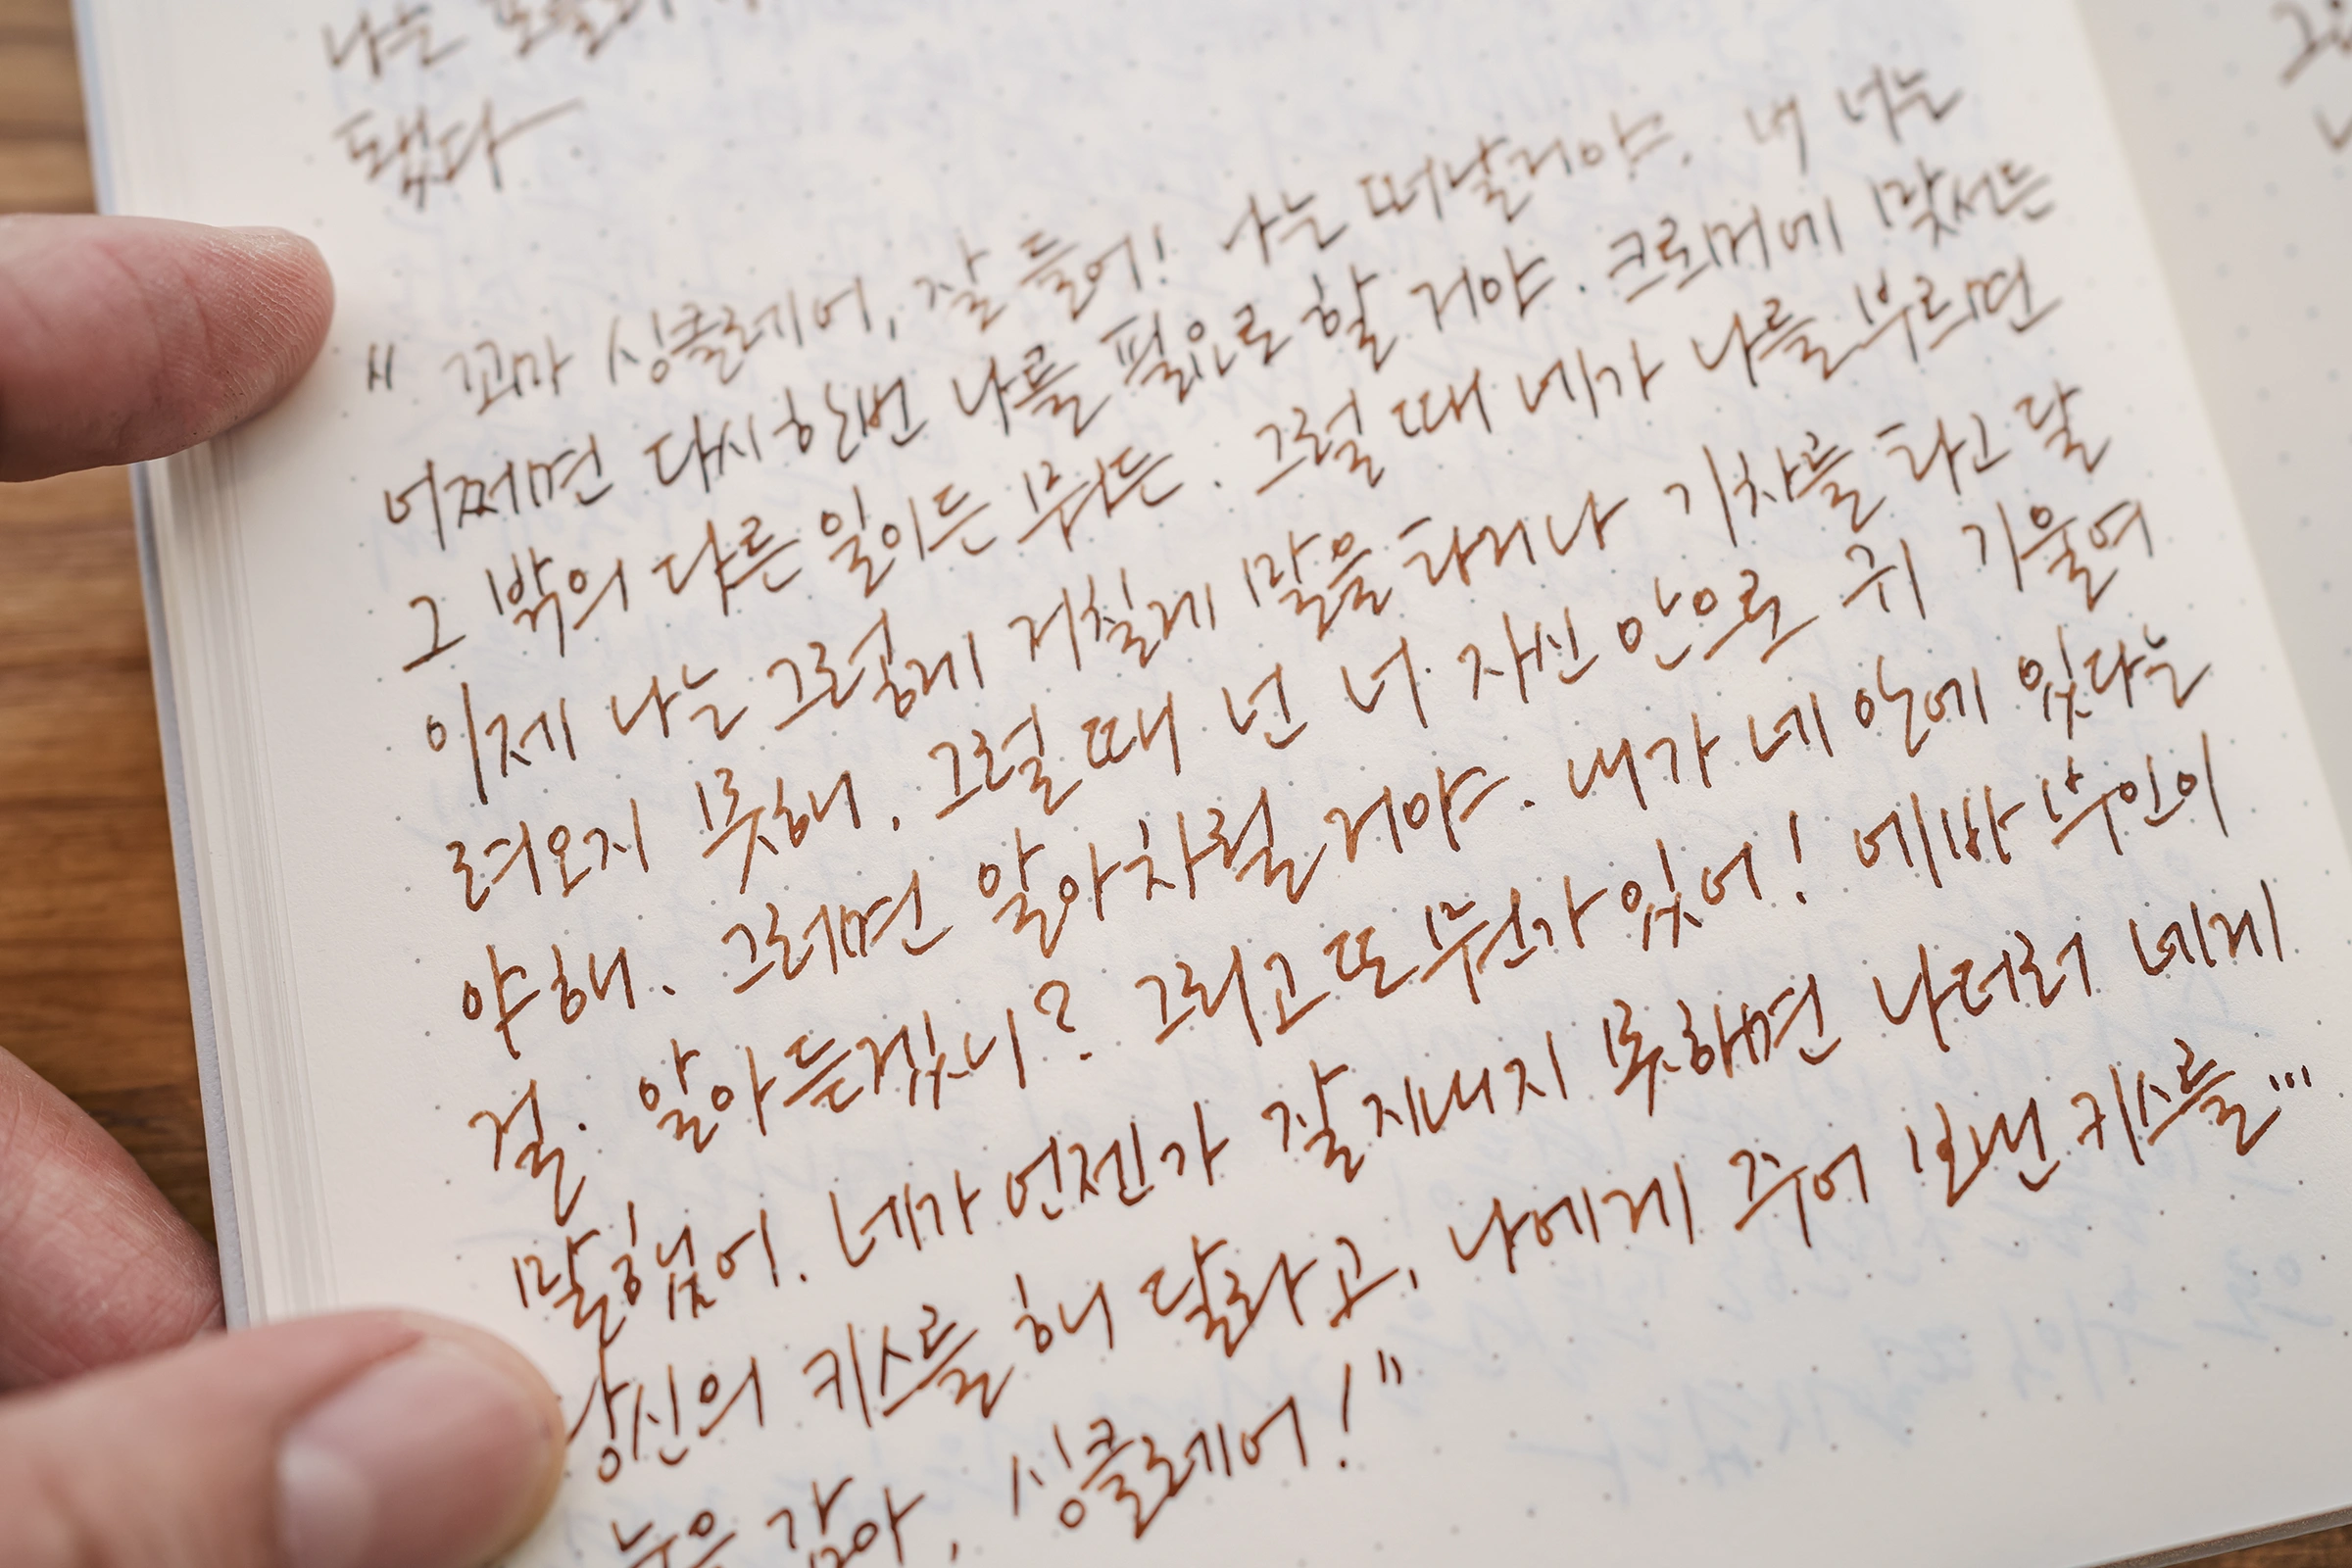 나는
됐다
" 꼬마 싱클레어, 잘 들어! 나는 떠날거야. 너는
어쩌면 다시한번 나를 필요로 할 거야. 크로머에 맞서든
그 밖의 다른 일이든 뭐든. 그럴 때 네가 나를 부르면
이제 나는 그렇게 거칠게 말을 타거나 기차를 타고 달
려오지 못해. 그럴 때 넌 너 자신 안으로 귀 기울여
야 해. 그러면 알아차릴 거야. 내가 네 안에 있다는
걸. 알아듣겠니? 그리고 또 뭔가 있어! 에바 부인이
말했어. 네가 언젠가 잘 지내지 못하면 나더러 네게
당신의 키스를 해 달라고, 나에게 주어 보낸 키스를…
눈을 감아, 싱클레어!"